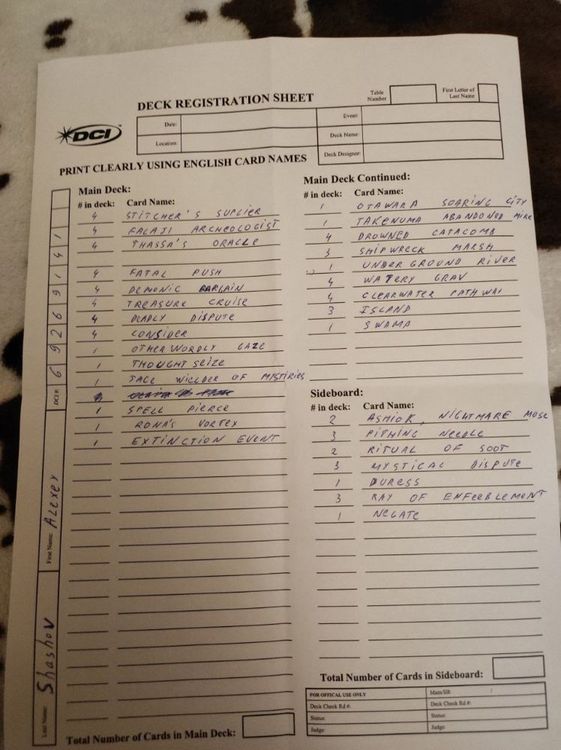 DECK REGISTRATION SHEET
Table Number
First Letter of Last Name
DCI
Date:
Event:
Location:
Deck Name:
Deck Designer:
PRINT CLEARLY USING ENGLISH CARD NAMES
Main Deck:
# in deck: Card Name:
4 STITCHER'S SUPLIER
4 FALAJI ARCHEOLOGIST
4 THASSA'S ORACLE
4 FATAL PUSH
4 DEMONIC BARGAIN
4 TREASURE CRUISE
4 DEADLY DISPUTE
4 CONSIDER
1 OTHERWORDLY GAZE
1 THOUGHTSEIZE
1 TACE WIELDER OF MISTIRIES
1 SPELL PIERCE
1 RONA'S VORTEX
1 EXTINCTION EVENT
Total Number of Cards in Main Deck:
Main Deck Continued:
# in deck: Card Name:
1 OTAWARA SOARING CITY
1 TAKENUMA ABANDONED MIRE
4 DROWNED CATACOMB
3 SHIPWRECK MARSH
1 UNDERGROUND RIVER
4 WATERY GRAV
4 CLEARWATER PATHWAY
3 ISLAND
1 SWAMP
Sideboard:
# in deck: Card Name:
2 ASHIOK, NIGHTMARE MUSE
3 PITHING NEEDLE
2 RITUAL OF SOOT
3 MYSTICAL DISPUTE
1 DURESS
3 RAY OF ENFEEBLEMENT
1 NEGATE
Total Number of Cards in Sideboard:
FOR OFFICAL USE ONLY
Main/SB: /
Deck Check Rd #:
Deck Check Rd #:
Status:
Status:
Judge:
Judge:
DCI #: 6 9 2 6 9 1 4 1
First Name: Alexey
Last Name: Shashov